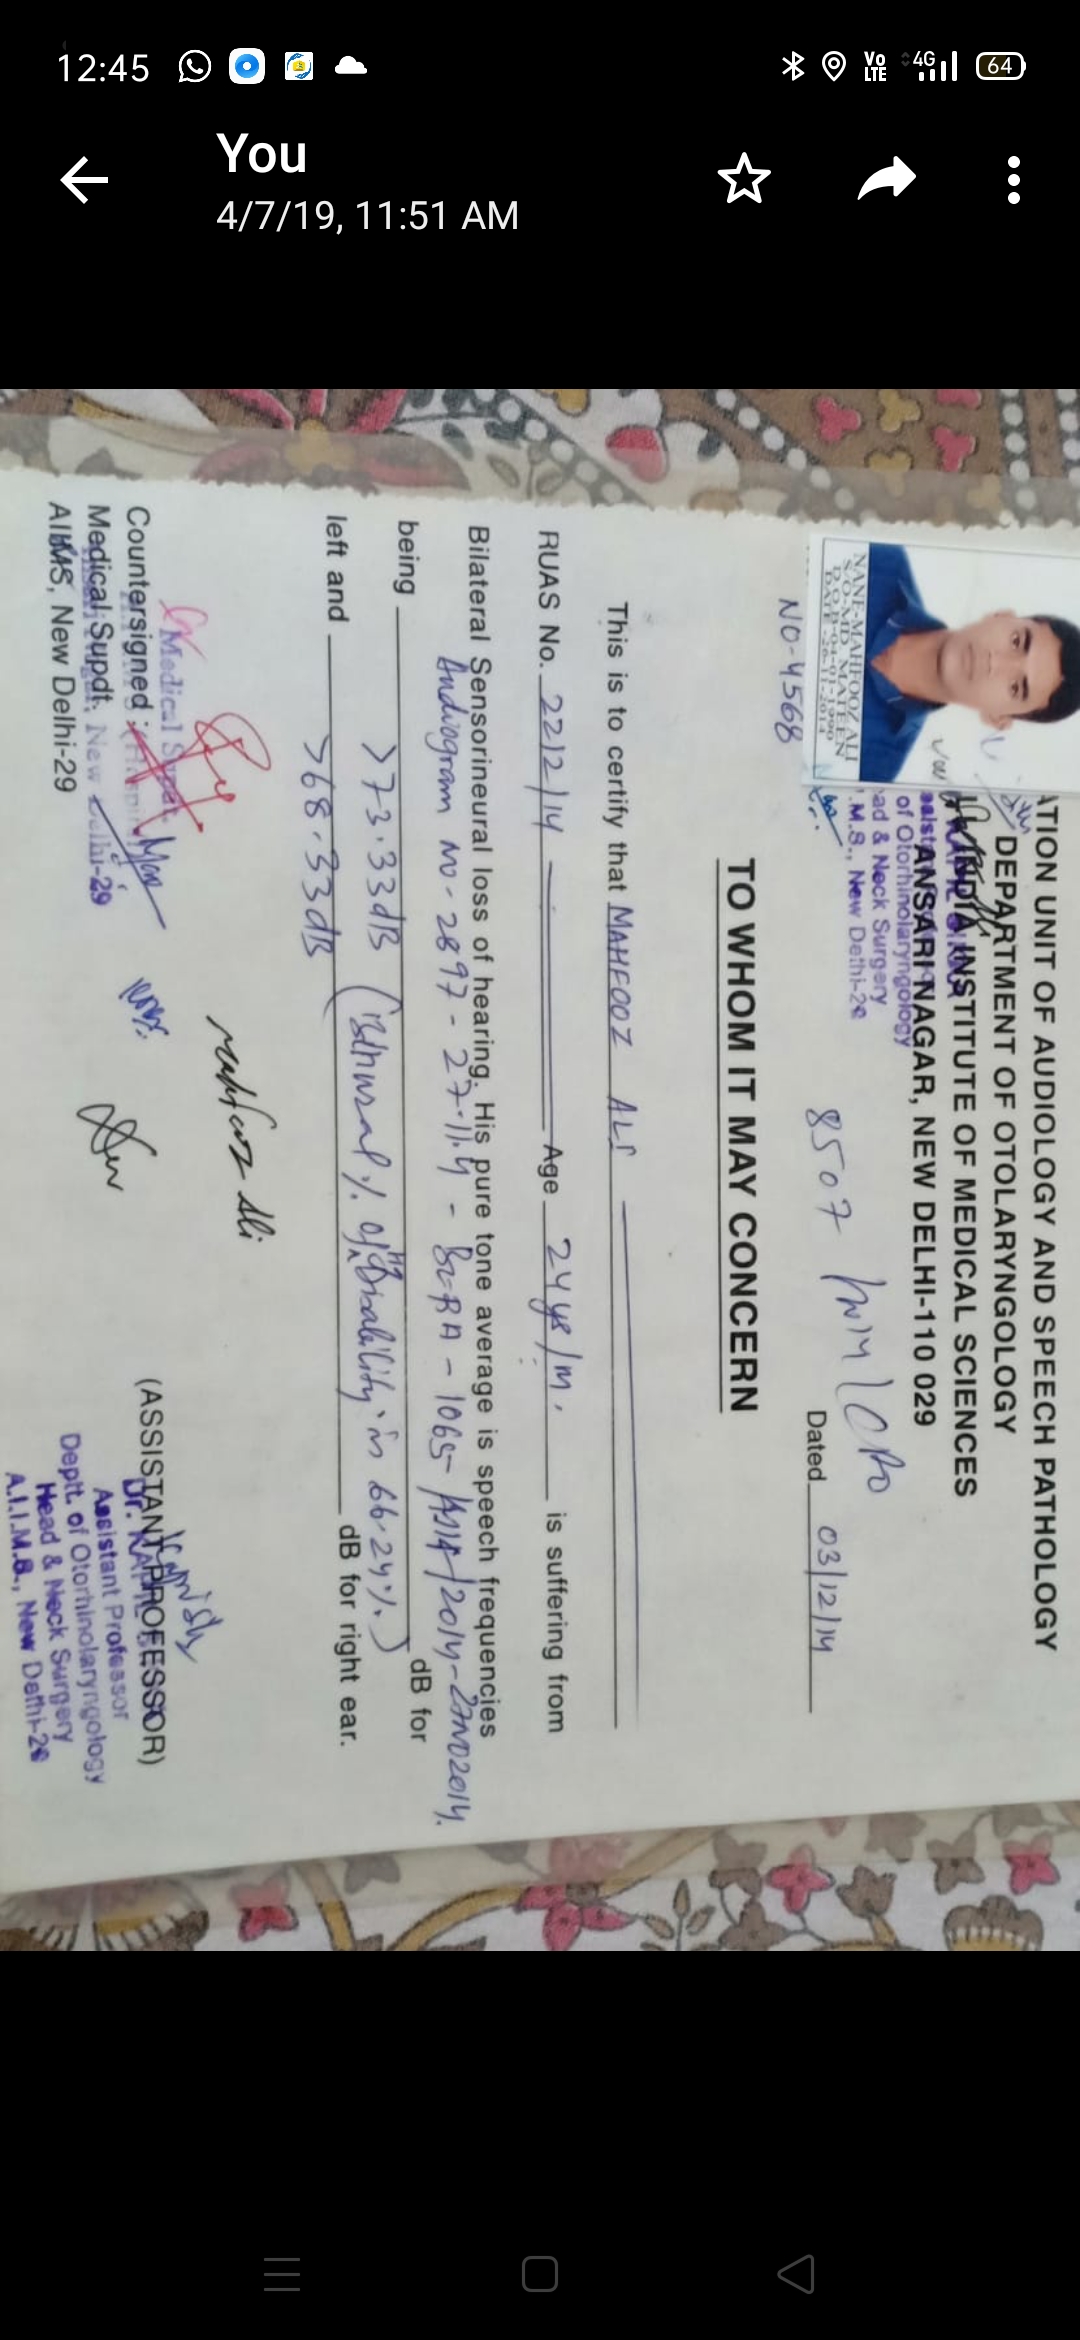 12:45
Vo LTE 4G 64
You
4/7/19, 11:51 AM
ATION UNIT OF AUDIOLOGY AND SPEECH PATHOLOGY
DEPARTMENT OF OTOLARYNGOLOGY
INDIA INSTITUTE OF MEDICAL SCIENCES
ANSARI NAGAR, NEW DELHI-110 029
of Otorhinolaryngology
ad & Neck Surgery
.M.S., New Delhi-29
NANE-MAHFOOZ ALI
S/O-MD. MATEEN
D.O.B-04-01-1990
DATE-26-11-2014
NO-4568
8507
Dated 03/12/14
TO WHOM IT MAY CONCERN
This is to certify that MAHFOOZ ALI
RUAS No. 2212/14 Age 24 ys/m. is suffering from
Bilateral Sensorineural loss of hearing. His pure tone average is speech frequencies
Audiogram NO-2897-27.11.14 - BERA-1065-/2014-27NO2014.
being >73.33dB dB for
% of Hg Disability is 66.24%.)
left and >68.33dB dB for right ear.
Mahfooz Ali
Countersigned :
Medical Supdt.
AIIMS, New Delhi-29
Medical Supdt.
New Delhi-29
(ASSISTANT PROFESSOR)
Assistant Professor
Deptt. of Otorhinolaryngology
Head & Neck Surgery
A.I.I.M.S., New Delhi-29